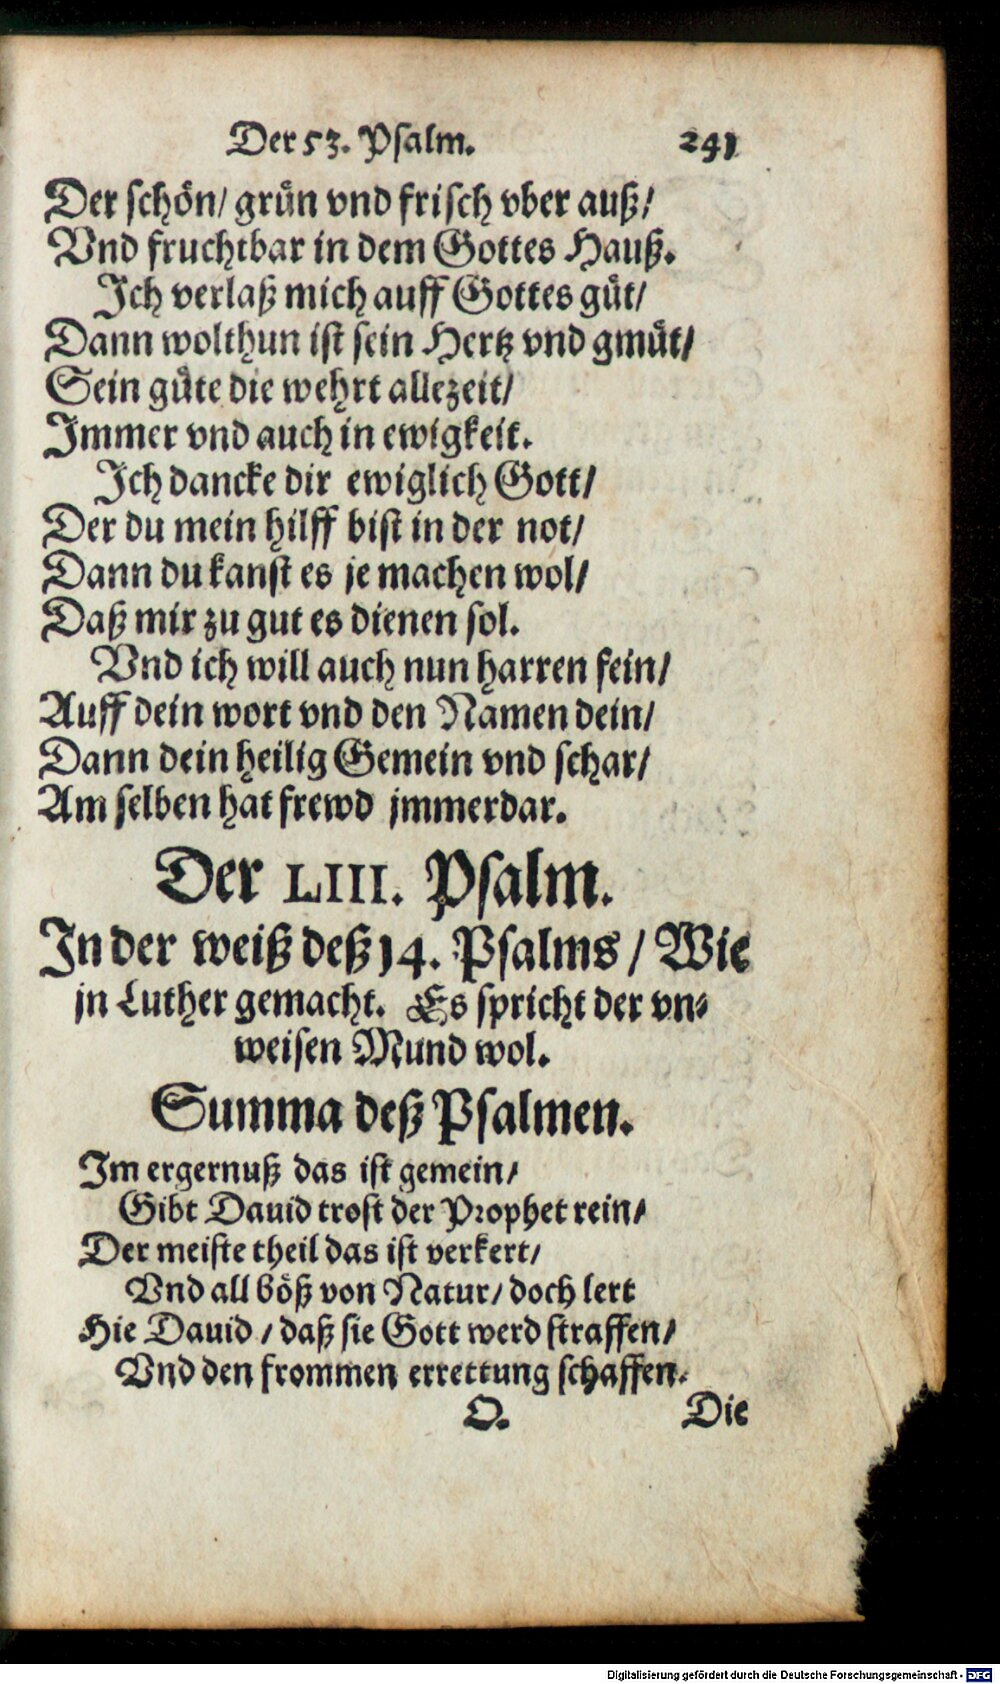 Der 53. Psalm. 241
Der schön/ grün vnd frisch vber auß/
Vnd fruchtbar in dem Gottes Hauß.
Ich verlaß mich auff Gottes güt/
Dann wolthun ist sein Hertz vnd gmüt/
Sein güte die wehrt allezeit/
Immer vnd auch in ewigkeit.
Ich dancke dir ewiglich Gott/
Der du mein hilff bist in der not/
Dann du kanst es je machen wol/
Daß mir zu gut es dienen sol.
Vnd ich will auch nun harren fein/
Auff dein wort vnd den Namen dein/
Dann dein heilig Gemein vnd schar/
Am selben hat frewd jmmerdar.
Der LIII. Psalm.
In der weiß deß 14. Psalms / Wie
jn Luther gemacht. Es spricht der vn⸗
weisen Mund wol.
Summa deß Psalmen.
Im ergernuß das ist gemein/
Gibt Dauid trost der Prophet rein/
Der meiste theil das ist verkert/
Vnd all böß von Natur/ doch lert
Hie Dauid / daß sie Gott werd straffen/
Vnd den frommen errettung schaffen.
O. Die
Digitalisierung gefördert durch die Deutsche Forschungsgemeinschaft - DFG